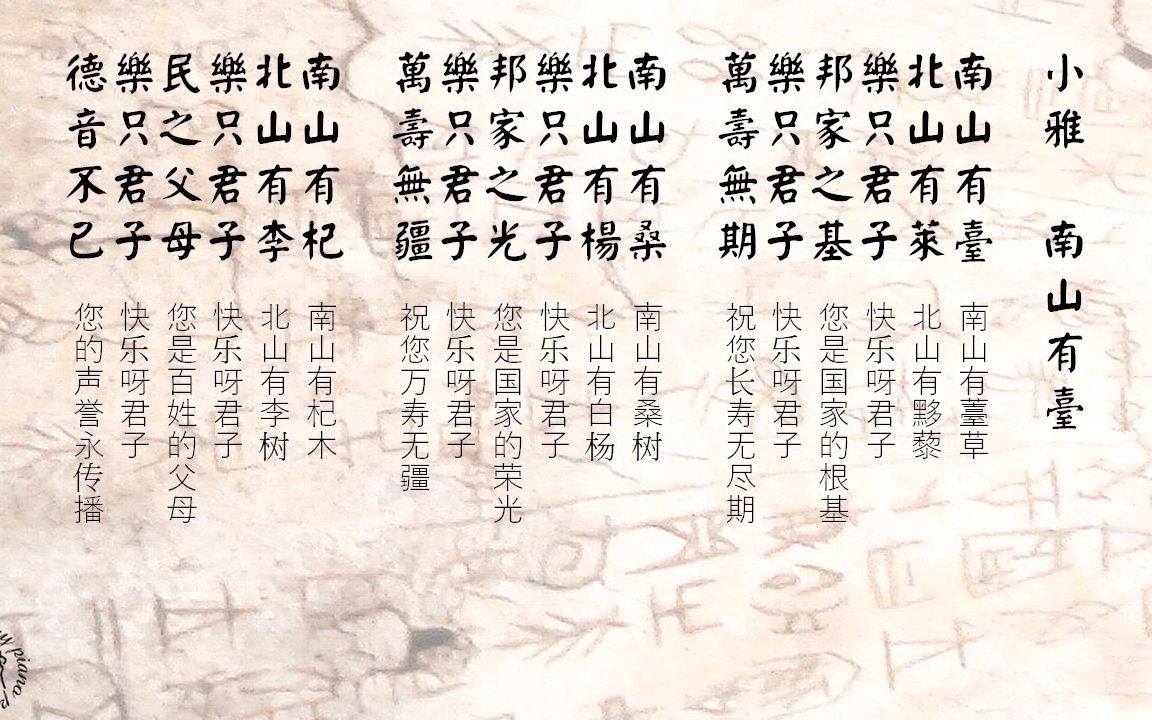 小雅 南山有臺
南山有臺
北山有萊
樂只君子
邦家之基
樂只君子
萬壽無期
南山有薹草
北山有黟藜
快乐呀君子
您是国家的根基
快乐呀君子
祝您长寿无尽期
南山有桑
北山有楊
樂只君子
邦家之光
樂只君子
萬壽無疆
南山有桑树
北山有白杨
快乐呀君子
您是国家的荣光
快乐呀君子
祝您万寿无疆
南山有杞
北山有李
樂只君子
民之父母
樂只君子
德音不已
南山有杞木
北山有李树
快乐呀君子
您是百姓的父母
快乐呀君子
您的声誉永传播
piano